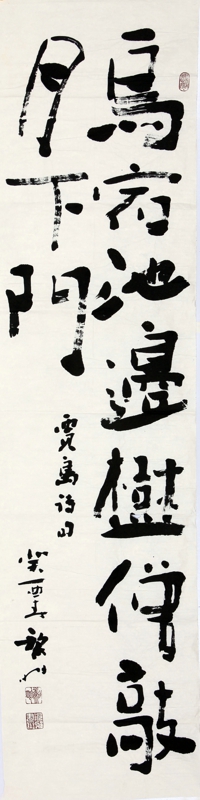 鳥宿池邊樹僧敲
月下門
賈島詩句
癸酉春